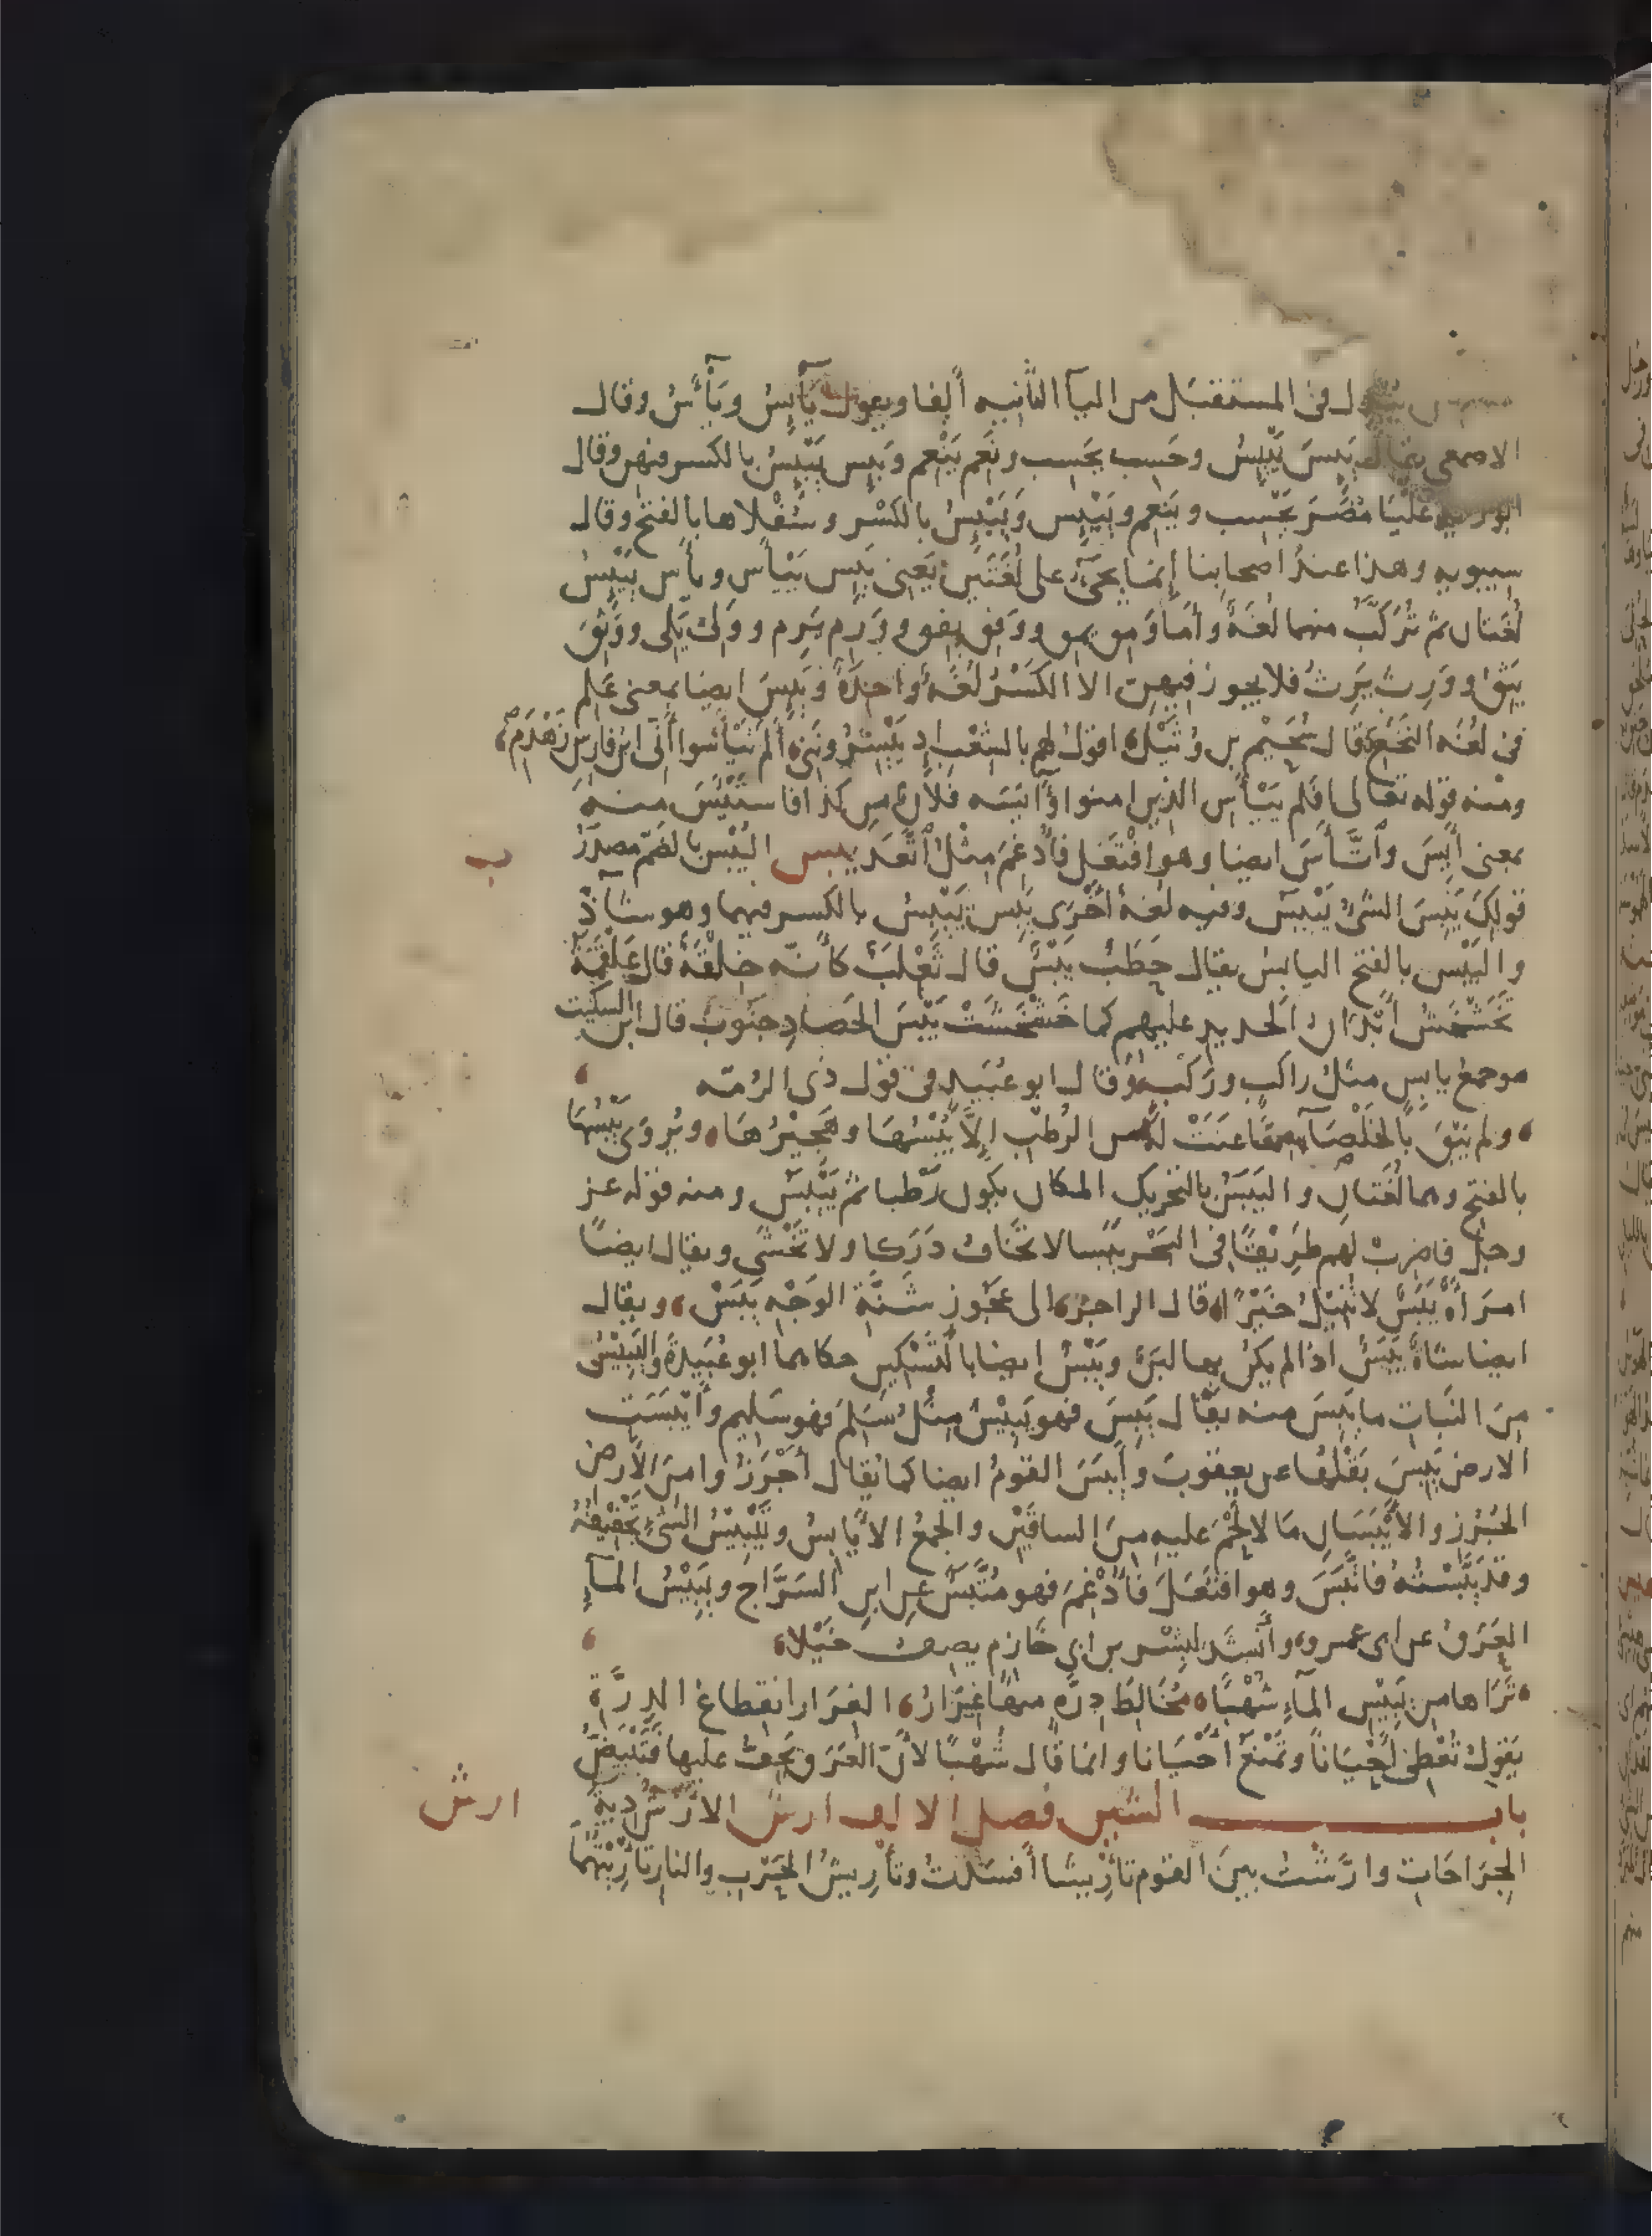 يبدل فى المستقبل من اليآ الثانيه ألفا ويقول يَآبِسُ ويَآءَسُ وقال
الاصمعى يقال يَئِسَ يَيْئِسُ وحَسِب يحَسِب ونَعِم يَنْعِم ويَئِس يَيْئِسُ بالكسر فيهن وقال
ابو زيد عُلْيَا مُضَرَ يَحْسِب ويَنعِم ويَيْئِس وَيَيْبِسُ بالكَسْر وسُفْلاها بالفتح وقال
سيبويه وهذا عندَ اصحابنا إنما يجىُٔ على لُغَتَين يَعنى يَئِس يَيْأَس ويأَس يَيْئِسُ
لُغتان ثم تُركَّبُ منهما لُغَةٌ وأما وَمِق يمِق ووَفِق يفِق ووَرِم يَرِم ووَلِىَ يَلِى ووَثِقَ
يَثِقُ ووَرِثَ يَرِث فلا يجوز فيهن الا الكَسْرُ لُغَةً واحدةً ويَئِسَ ايضا بمعنى عَلِم
فى لُغَه النَخَعِ قال سُحَيْم بن وُثَيْل اقولُ لهم بالشِعْبِ اذ يَيْسِرُونَنى ألم تَيْأسوا أنّى ابن فارسِ زَهْدَم
ومنه قوله تعالى افلم يَيْأَسِ الذين امنوا وآيَسَه فلانٌ من كذا فاستَيْئَسَ منه
بمعنى أيِسَ واتَّأسَ ايضا وهو افْتَعَل فأُدْغِمَ مِثْلُ اتَّعَدَ يبس اليُبْس بالضَمّ مصدَرُ
قولِكَ يَبِسَ الشىُٔ يَيْبَس وفيه لغة أخرى يَبِس يَيْبِسُ بالكسر فيهما وهو شآذّ
واليَبْس بالفتح اليابِسُ يقال حطَبٌ يَبْسٌ قال ثَعْلَبٌ كأنّه خِلْقَةٌ قال عَلْقَمَةُ
تَخَشْخَشُ أبْدَانُ الحديدِ عليهم كما خَشْخَشَتْ يَبْسَ الحَصَادِ جَنُوبُ قال ابن السكيت
هو جمعُ يابِسٍ مثلُ راكبٍ ورَكْبٍ وقال ابو عُبَيدٍ فى قول ذى الرُمّه
ولم يَبْقَ بالخَلْصَآءِ مِمّا عَنَتْ به من الرُطْبِ إلاّ يُبْسُهَا وهَجِيْرُهَا ويُرْوَى يَبْسُها
بالفتح وهما لُغَتانِ واليَبَسُ بالتحريك المكان يكون رَطْبا ثم يَيْبَس ومنه قوله عز
وجلّ فاضرِبْ لهم طَرِيْقًا فى البَحْرِ يَبَسا لا تخَافُ دَرَكا ولا تَخْشَى ويقال ايضًا
امرَأةٌ يَبَسٌ لا تُنيلُ خَيْرًا قال الراجز الى عَجُوز شَنَّةِ الوَجْهِ يَبَسْ ويقال
ايضا شاةٌ يَبَسٌ اذا لم يكن بها لبَنٌ ويَبْسٌ ايضا بالتَسْكِين حكاهما ابو عُبَيدَةَ واليَبِيْسُ
مِنَ النَبات ما يَبِسَ منه يقَال يَبِسَ فهو يَبِيْسٌ مِثْلُ سَلِمَ فهو سَلِيم وأيْبَسَتِ
الارض يَبِسَ بَقْلُها عن يعقوبَ وأيبَسَ القومُ ايضا كما يُقَال أجْرَزُوا مِنَ الأرضِ
الجُرُزِ والأيْبَسَانِ مَا لا لَحْمَ عليهِ مِنَ الساقَيْن والجمعُ الأيَابِسُ وتَيْبِيْسُ الشىءِ تَجْفِيْفُهُ
وقد يَبَّسْتُه فاتَّبَسَ وهو افتَعَلَ فأُدْغِمَ فهو مُتَّبِسٌ عن ابنِ السَرَّاج ويَبِيْسُ المآءِ
العَرَقُ عن ابى عمرو وأنشَدَ لبِشْر بن ابى خَازِم يصف خَيْلا
تَرَاها من يَبِيْسِ المآءِ شُهْبًا مُخَالِطَ دِرَّةٍ منها غِرَارُ الغِرَار انقطاع الدِرَّة
يَقولُ تُعْطِى أحْيَاناً وتَمْنَعُ أحْيَانا وانما قَال شُهْبًا لأنّ العَرَق يَجِفُّ عليها فَتَبْيَضُّ
باب الشين فصل الالف ارش الأرْشُ دِيَةُ
الجِرَاحَاتِ وارَّشْتُ بينَ القوم تأرِيشًا أفسَدتُ وتأرِيشُ الحَرْبِ والنارِ تأرِيْثُهُمَا
يب
ارش